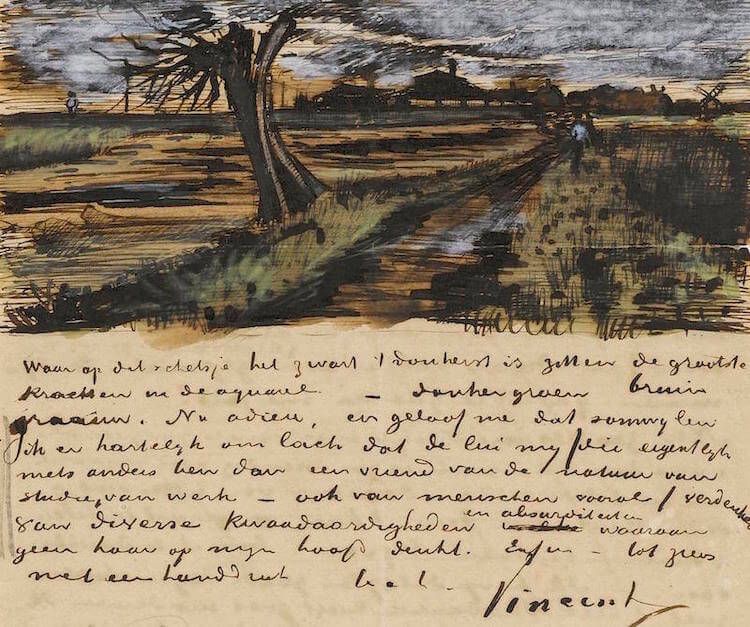 Waar op dit schetsje het zwart 't donkerst is zitten de grootste
krachten in de aquarel – donkergroen bruin
graauw. Nu adieu, en geloof me dat somwylen
ik er hartelyk om lach dat de lui my /die eigentlyk
niets anders ben dan een vriend van de natuur van
studie, van werk – ook van menschen vooral/ verdenken
van diverse kwaadaardigheden en absurditeiten waaraan
geen haar op myn hoofd denkt. Enfin – tot ziens
met een handdruk
Vincent